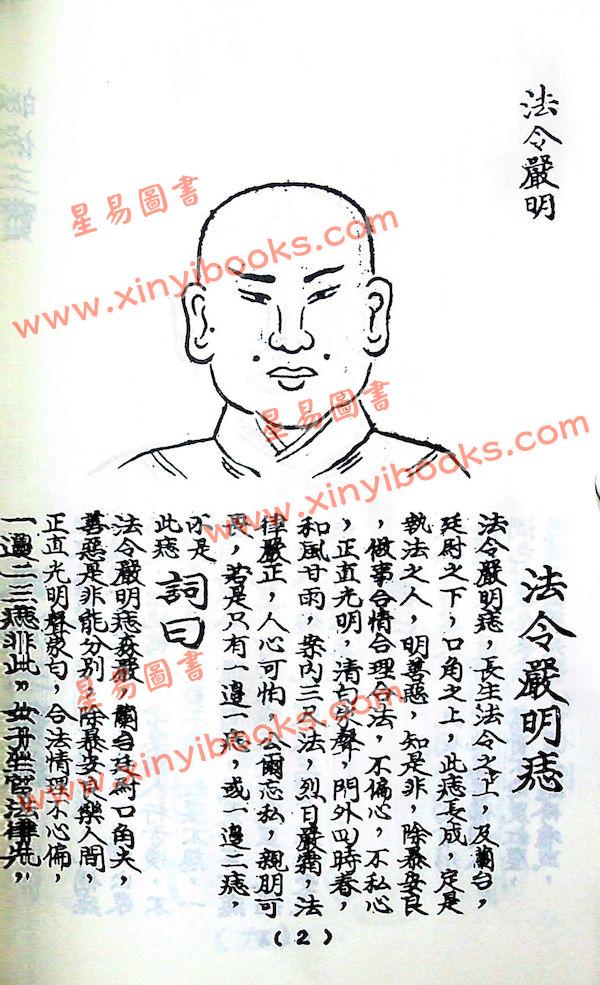 法令嚴明
法令嚴明痣
法令嚴明痣，長生法令之上，及蘭台，
廷尉之下，口角之上，此痣長成，定是
執法之人，明善惡，知是非，除暴安良
，做事合情合理合法，不偏心，不私心
，正直光明，清白家聲，門外四時春，
和風甘雨，案內三尺法，烈日嚴霜，法
律嚴正，人心可怕，公爾忘私，親朋可
畏，若是只有一邊一痣，或一邊二痣，
不是
此痣
詞曰
法令嚴明痣 嚴，蘭台廷尉口角尖，
善惡是非能分別，除暴安良樂人間，
正直光明聲家 ，合法情理不心偏，
一邊二三痣非此， 法律先，
(2)
星易圖書
www.xinyibooks.com
星易圖書
www.xinyibooks.com
星易圖書
www.xinyibooks.com